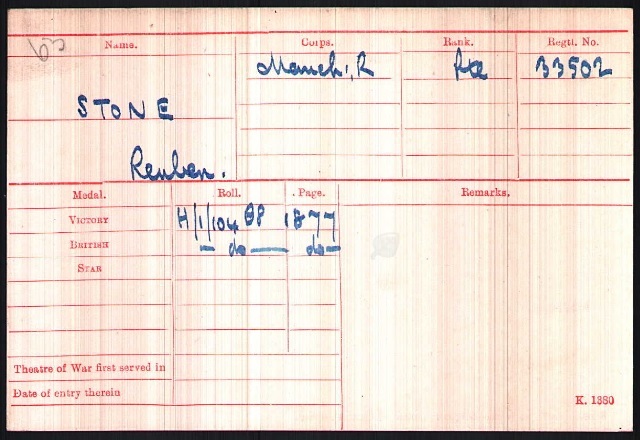 Name. Corps. Rank. Regtl. No.
STONE Manch. R Pte 33502
Reuben.
Medal. Roll. Page. Remarks.
VICTORY H/1/104 B8 1877
BRITISH — do — do —
STAR
Theatre of War first served in
Date of entry therein
K. 1380